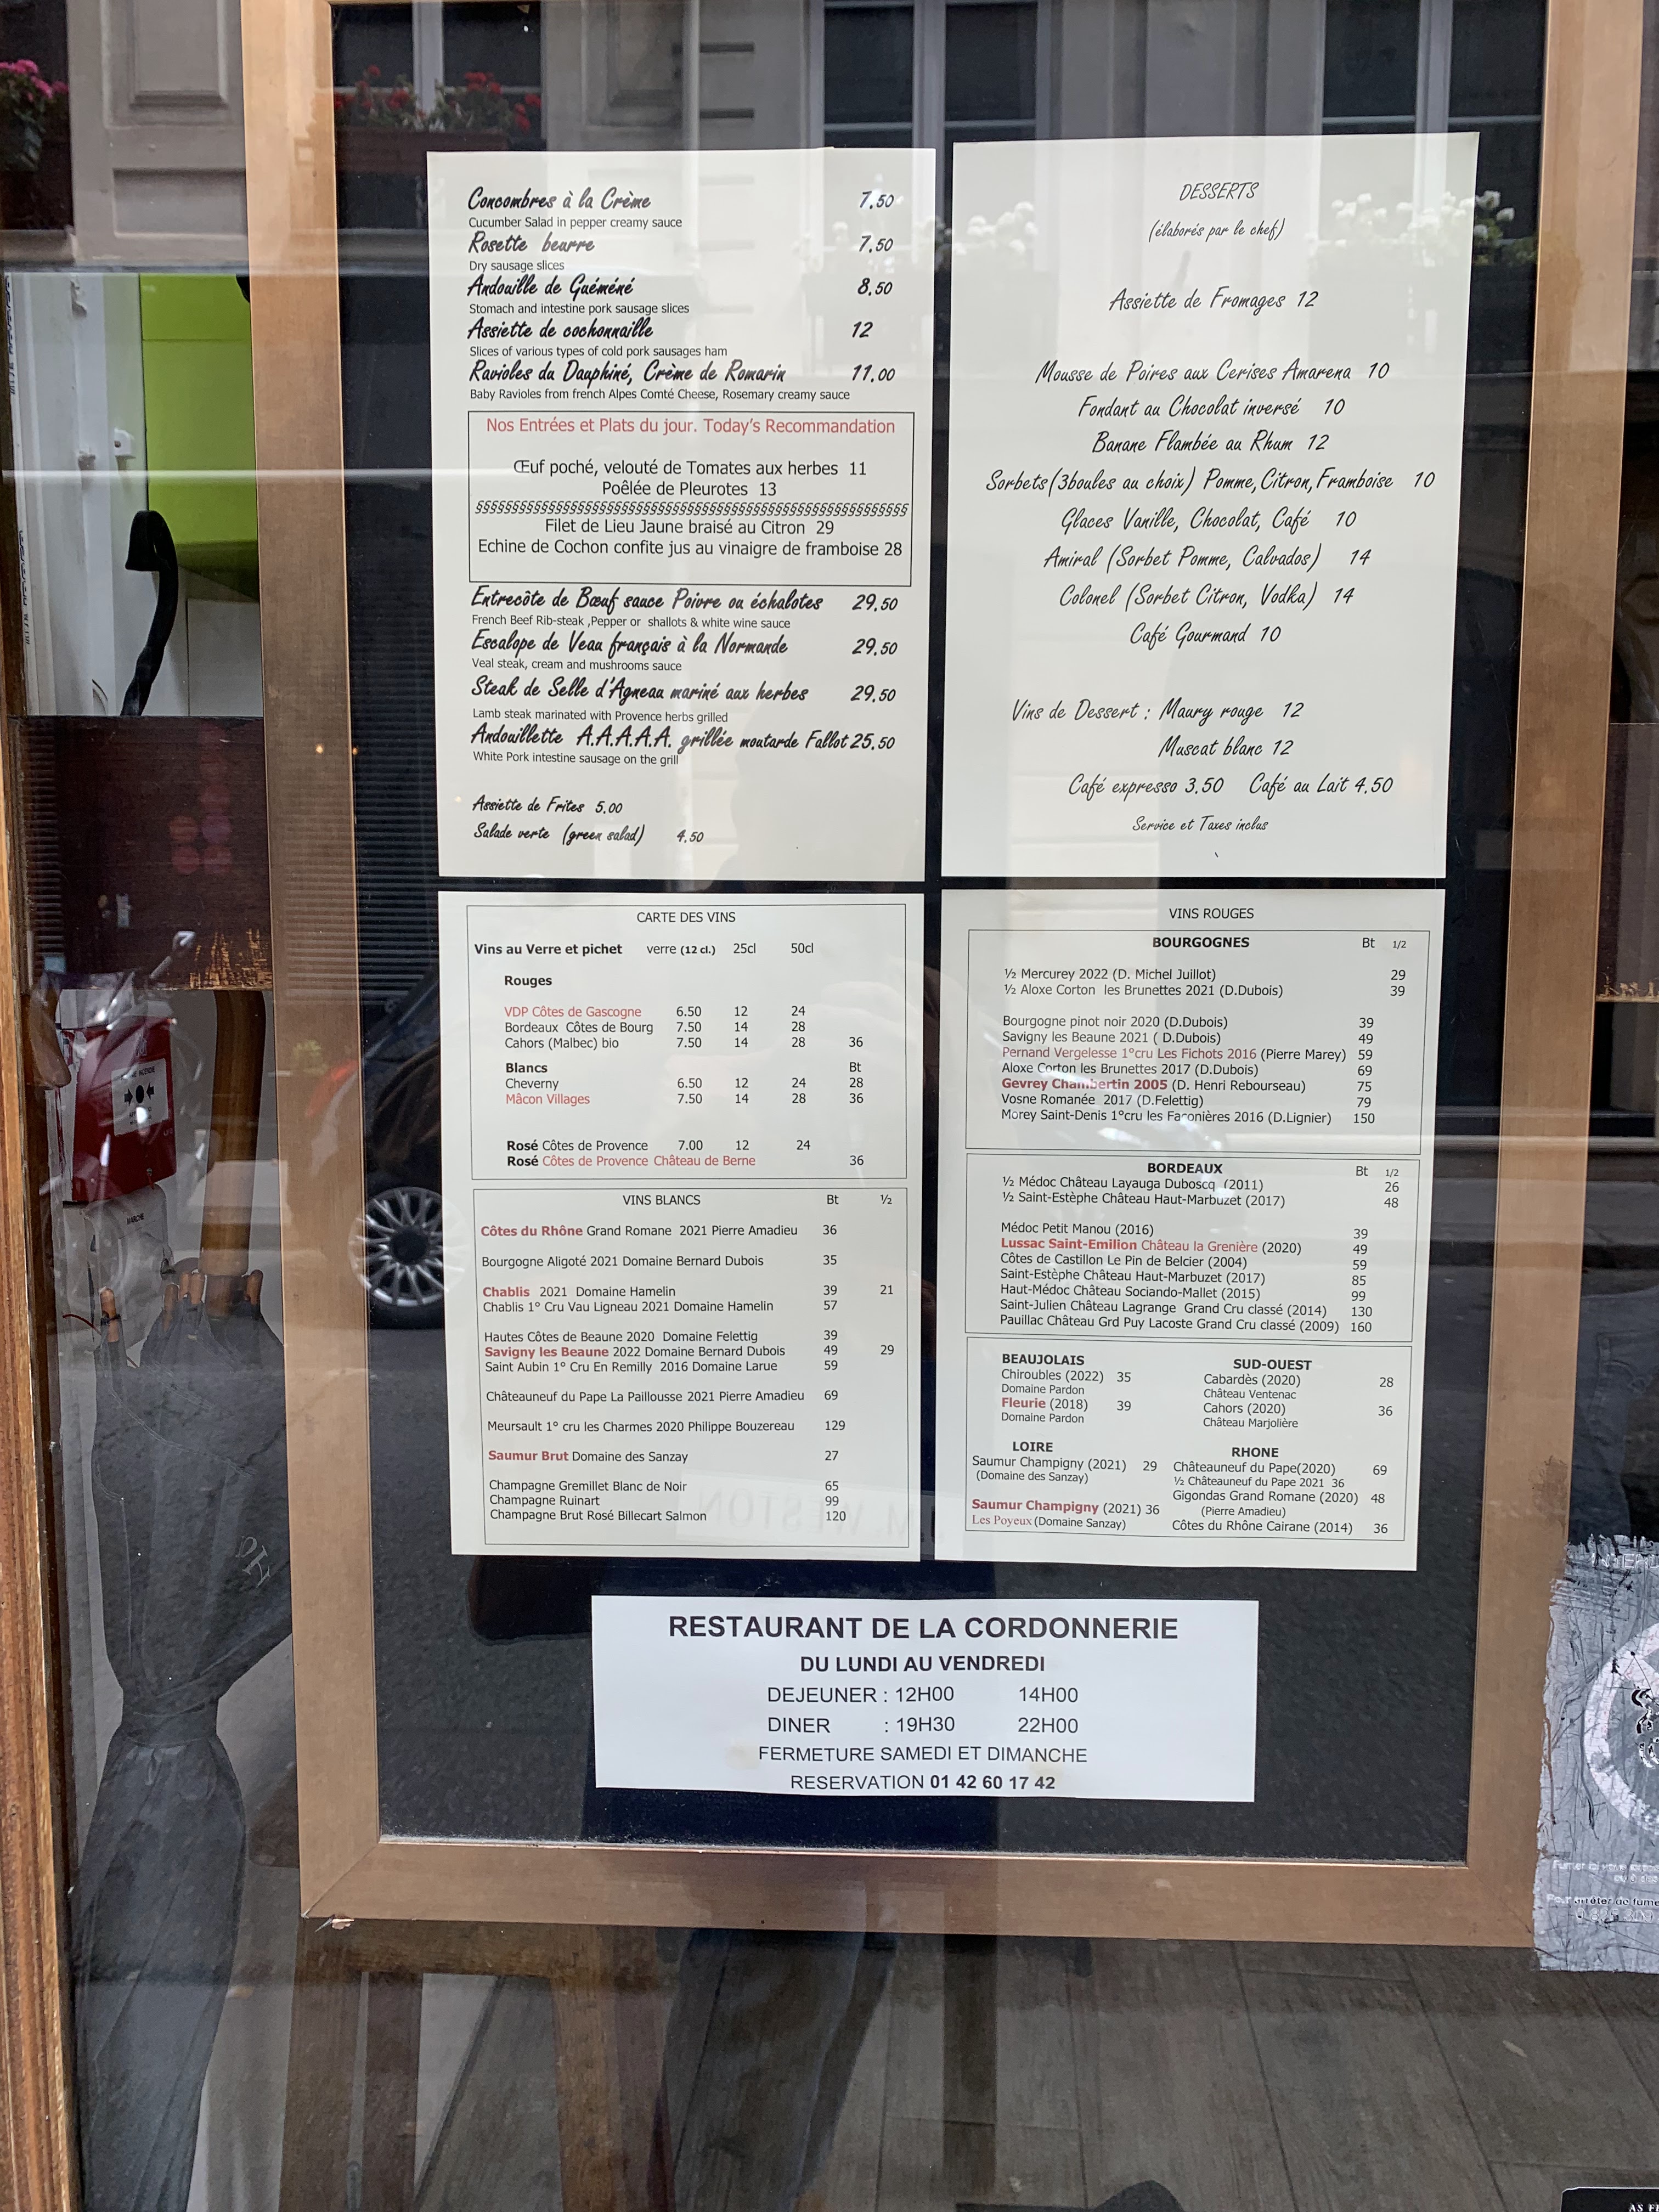 Concombres à la Crème 7.50
Cucumber Salad in pepper creamy sauce
Rosette beurre 7.50
Dry sausage slices
Andouille de Guéméné 8.50
Stomach and intestine pork sausage slices
Assiette de cochonnaille 12
Slices of various types of cold pork sausages ham
Ravioles du Dauphiné, Crème de Romarin 11.00
Baby Ravioles from french Alpes Comté Cheese, Rosemary creamy sauce
Nos Entrées et Plats du jour. Today's Recommandation
Œuf poché, velouté de Tomates aux herbes 11
Poêlée de Pleurotes 13
§§§§§§§§§§§§§§§§§§§§§§§§§§§§§§§§§§§§§§§§§§§§§§§§§§§§§§§§§§
Filet de Lieu Jaune braisé au Citron 29
Echine de Cochon confite jus au vinaigre de framboise 28
Entrecôte de Bœuf sauce Poivre ou échalotes 29.50
French Beef Rib-steak ,Pepper or shallots & white wine sauce
Escalope de Veau français à la Normande 29.50
Veal steak, cream and mushrooms sauce
Steak de Selle d'Agneau mariné aux herbes 29.50
Lamb steak marinated with Provence herbs grilled
Andouillette A.A.A.A.A. grillée moutarde Fallot 25.50
White Pork intestine sausage on the grill
Assiette de Frites 5.00
Salade verte (green salad) 4.50
DESSERTS
(élaborés par le chef)
Assiette de Fromages 12
Mousse de Poires aux Cerises Amarena 10
Fondant au Chocolat inversé 10
Banane Flambée au Rhum 12
Sorbets(3boules au choix) Pomme,Citron,Framboise 10
Glaces Vanille, Chocolat, Café 10
Amiral (Sorbet Pomme, Calvados) 14
Colonel (Sorbet Citron, Vodka) 14
Café Gourmand 10
Vins de Dessert : Maury rouge 12
Muscat blanc 12
Café expresso 3.50 Café au Lait 4.50
Service et Taxes inclus
CARTE DES VINS
Vins au Verre et pichet verre (12 cl.) 25cl 50cl
Rouges
VDP Côtes de Gascogne 6.50 12 24
Bordeaux Côtes de Bourg 7.50 14 28
Cahors (Malbec) bio 7.50 14 28 36
Blancs Bt
Cheverny 6.50 12 24 28
Mâcon Villages 7.50 14 28 36
Rosé Côtes de Provence 7.00 12 24
Rosé Côtes de Provence Château de Berne 36
VINS BLANCS Bt ½
Côtes du Rhône Grand Romane 2021 Pierre Amadieu 36
Bourgogne Aligoté 2021 Domaine Bernard Dubois 35
Chablis 2021 Domaine Hamelin 39 21
Chablis 1° Cru Vau Ligneau 2021 Domaine Hamelin 57
Hautes Côtes de Beaune 2020 Domaine Felettig 39
Savigny les Beaune 2022 Domaine Bernard Dubois 49 29
Saint Aubin 1° Cru En Remilly 2016 Domaine Larue 59
Châteauneuf du Pape La Paillousse 2021 Pierre Amadieu 69
Meursault 1° cru les Charmes 2020 Philippe Bouzereau 129
Saumur Brut Domaine des Sanzay 27
Champagne Gremillet Blanc de Noir 65
Champagne Ruinart 99
Champagne Brut Rosé Billecart Salmon 120
VINS ROUGES
BOURGOGNES Bt 1/2
½ Mercurey 2022 (D. Michel Juillot) 29
½ Aloxe Corton les Brunettes 2021 (D.Dubois) 39
Bourgogne pinot noir 2020 (D.Dubois) 39
Savigny les Beaune 2021 ( D.Dubois) 49
Pernand Vergelesse 1°cru Les Fichots 2016 (Pierre Marey) 59
Aloxe Corton les Brunettes 2017 (D.Dubois) 69
Gevrey Chambertin 2005 (D. Henri Rebourseau) 75
Vosne Romanée 2017 (D.Felettig) 79
Morey Saint-Denis 1°cru les Faconières 2016 (D.Lignier) 150
BORDEAUX Bt 1/2
½ Médoc Château Layauga Duboscq (2011) 26
½ Saint-Estèphe Château Haut-Marbuzet (2017) 48
Médoc Petit Manou (2016) 39
Lussac Saint-Emilion Château la Grenière (2020) 49
Côtes de Castillon Le Pin de Belcier (2004) 59
Saint-Estèphe Château Haut-Marbuzet (2017) 85
Haut-Médoc Château Sociando-Mallet (2015) 99
Saint-Julien Château Lagrange Grand Cru classé (2014) 130
Pauillac Château Grd Puy Lacoste Grand Cru classé (2009) 160
BEAUJOLAIS
Chiroubles (2022) 35
Domaine Pardon
Fleurie (2018) 39
Domaine Pardon
SUD-OUEST
Cabardès (2020) 28
Château Ventenac
Cahors (2020) 36
Château Marjolière
LOIRE
Saumur Champigny (2021) 29
(Domaine des Sanzay)
Saumur Champigny (2021) 36
Les Poyeux (Domaine Sanzay)
RHONE
Châteauneuf du Pape(2020) 69
½ Châteauneuf du Pape 2021 36
Gigondas Grand Romane (2020) 48
(Pierre Amadieu)
Côtes du Rhône Cairane (2014) 36
RESTAURANT DE LA CORDONNERIE
DU LUNDI AU VENDREDI
DEJEUNER : 12H00 14H00
DINER : 19H30 22H00
FERMETURE SAMEDI ET DIMANCHE
RESERVATION 01 42 60 17 42